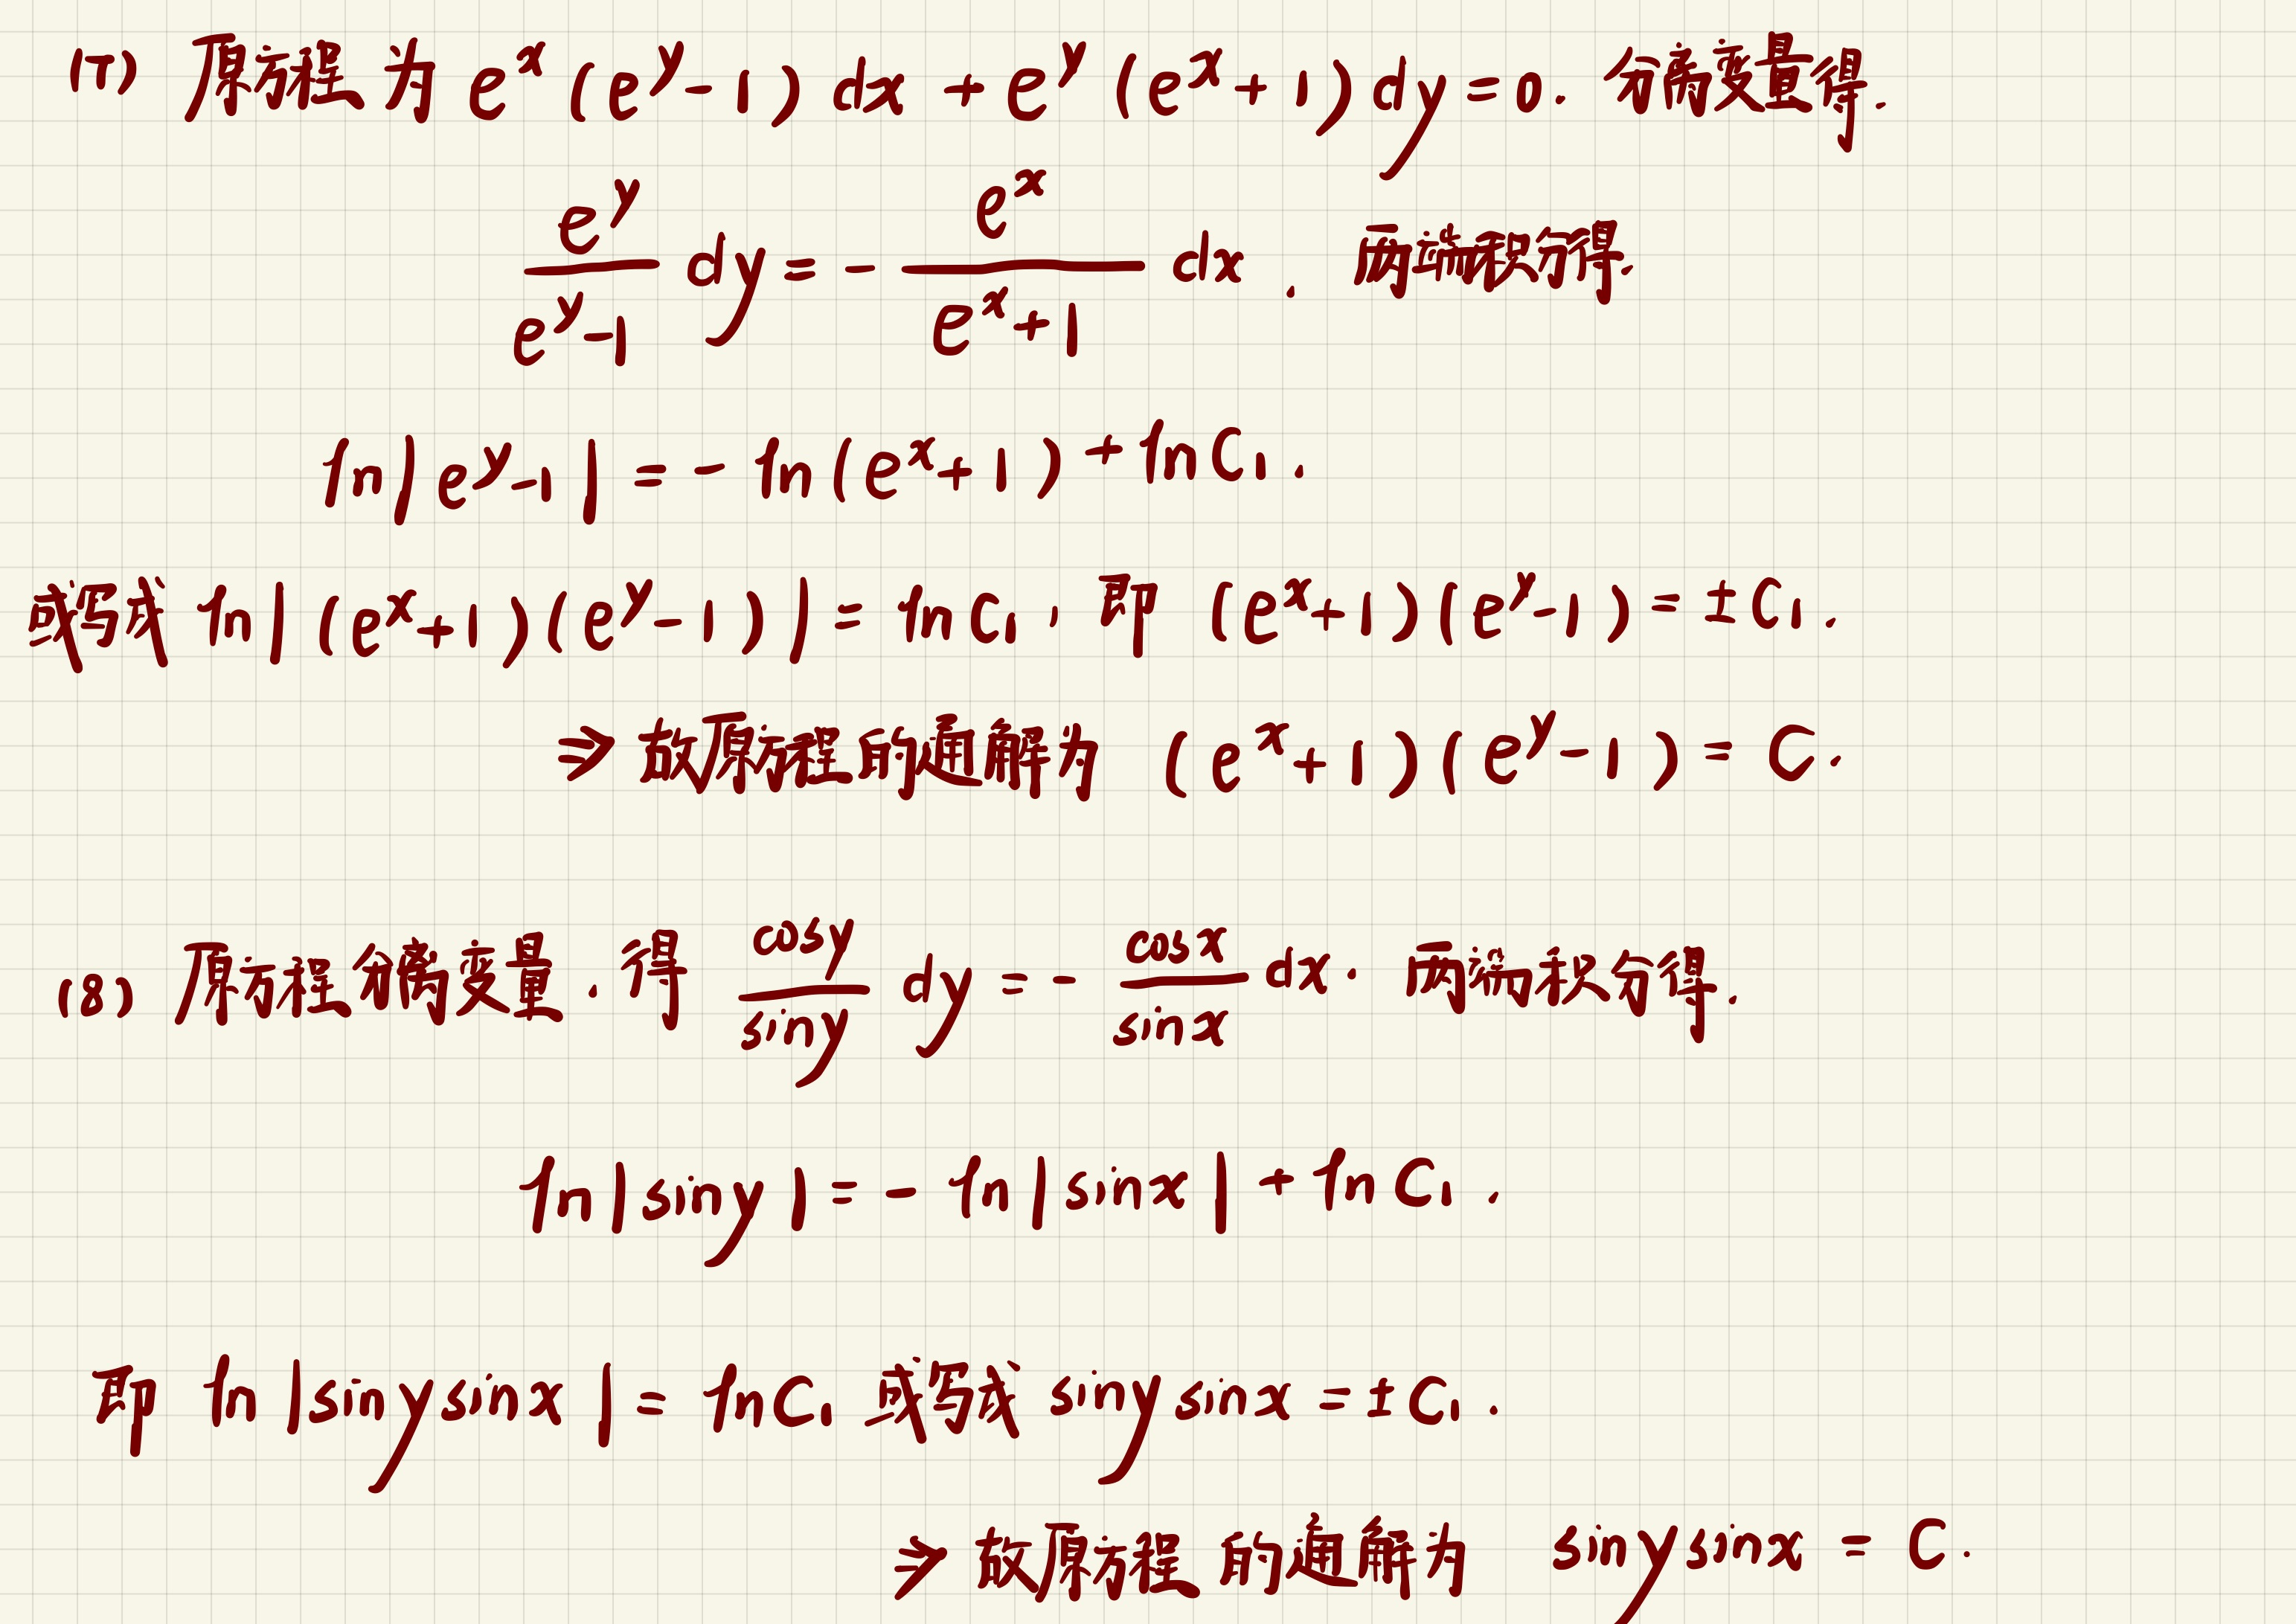 (7) 原方程为 e^x(e^y-1)dx+e^y(e^x+1)dy=0. 分离变量得.
\frac{e^y}{e^y-1}dy=-\frac{e^x}{e^x+1}dx. 两端积分得.
ln|e^y-1|=-ln(e^x+1)+lnC₁.
或写成 ln|(e^x+1)(e^y-1)|=lnC₁, 即 (e^x+1)(e^y-1)=±C₁.
⇒ 故原方程的通解为 (e^x+1)(e^y-1)=C.
(8) 原方程分离变量.得 \frac{cosy}{siny}dy=-\frac{cosx}{sinx}dx. 两端积分得.
ln|siny|=-ln|sinx|+lnC₁.
即 ln|sinysinx|=lnC₁ 或写成 sinysinx=±C₁.
⇒ 故原方程的通解为 sinysinx=C.